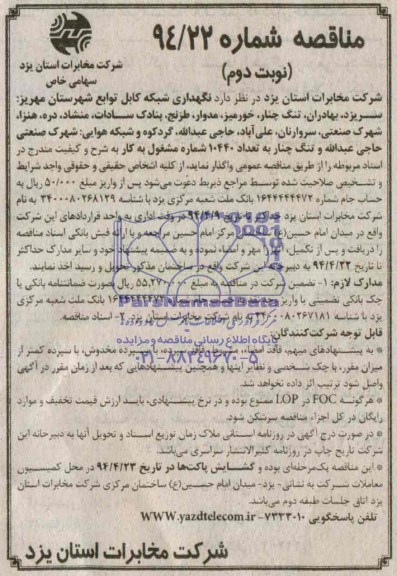 مناقصه شماره ۹۴/۲۲
(نوبت دوم)
شرکت مخابرات استان یزد
سهامی خاص
شرکت مخابرات استان یزد در نظر دارد نگهداری شبکه کابل توابع شهرستان مهریز:
سریزد، بهادران، تنگ چنار، خورمیز، مدوار، طزنج، بنادک سادات، منشاد، دره، هنزا،
شهرک صنعتی، سروارنان، علی‌آباد، حاجی عبدالله، گردکوه و شبکه هوایی: شهرک صنعتی
حاجی عبدالله و تنگ چنار به تعداد ۱۰۴۴۰ شماره مشغول به کار به شرح و کیفیت مندرج در
اسناد مربوطه را از طریق مناقصه عمومی واگذار نماید، از کلیه اشخاص حقیقی و حقوقی واجد شرایط
و تشخیص صلاحیت شده توسط مراجع ذیربط دعوت می‌شود پس از واریز مبلغ ۵۰/۰۰۰ ریال به
حساب جام شماره ۱۶۴۴۴۴۴۴۷۲ بانک ملت شعبه مرکزی یزد با شناسه ۳۴۰۰۰۸۰۲۶۸۱۲۹ به نام
شرکت مخابرات استان یزد ۹۴/۴/۹ اداری به واحد قراردادهای این شرکت
واقع در میدان امام حسین(ع) مرکز امام حسین مراجعه و با ارائه فیش بانکی اسناد مناقصه
را دریافت و پس از تکمیل، مهر و امضاء نموده و به ضمیمه پیشنهاد خود و سایر مدارک حداکثر
تا تاریخ ۹۴/۴/۲۲ به دبیرخانه این شرکت واقع در ساختمان مذکور تحویل و رسید اخذ نمایند.
مدارک لازم: ۱- تضمین شرکت در مناقصه به مبلغ ریال بصورت ضمانتنامه بانکی یا
چک بانکی تضمینی یا واریز بانک ملت شعبه مرکزی
یزد با شناسه به نام شرکت مخابرات استان یزد. ۲- اسناد مناقصه.
قابل توجه شرکت‌کنندگان:
* به پیشنهادهای مبهم، فاقد امضاء، سپرده مخدوش، یا سپرده کمتر از
میزان مقرر، یا چک شخصی و نظایر اینها و همچنین پیشنهادهایی که بعد از زمان مقرر در آگهی
واصل شود ترتیب اثر داده نخواهد شد.
* هرگونه FOC در LOP ممنوع بوده و در نرخ پیشنهادی، بایسد ارزش قیمت تخفیف و موارد
رایگان در کل اجزاء مناقصه سرشکن شود.
* در صورت درج آگهی در روزنامه استانی ملاک زمان توزیع اسناد و تحویل آنها به دبیرخانه این
شرکت تاریخ چاپ در روزنامه کثیرالانتشار سراسری می‌باشد.
* این مناقصه یک‌مرحله‌ای بوده و گشایش پاکت‌ها در تاریخ ۹۴/۴/۲۳ در محل کمیسیون
معاملات شرکت به نشانی: یزد- میدان امام حسین(ع) ساختمان مرکزی شرکت مخابرات استان
یزد اتاق جلسات طبقه دوم می‌باشد.
تلفن پاسخگویی ۷۲۳۳۰۱۰ - WWW.yazdtelecom.ir
شرکت مخابرات استان یزد
ParsNamadData
پایگاه اطلاع رسانی مناقصه و مزایده
۰۲۱-۸۸۳۴۹۶۷۰-۵